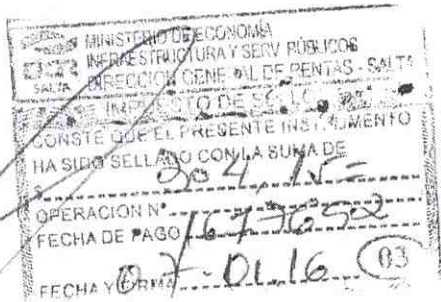 MINISTERIO DE ECONOMÍA
INFRAESTRUCTURA Y SERV PÚBLICOS
DIRECCION GENERAL DE RENTAS - SALTA
SALTA
IMPUESTO DE SELLOS
CONSTE QUE EL PRESENTE INSTRUMENTO
HA SIDO SELLADO CON LA SUMA DE
$ 204,15=
OPERACION Nº
FECHA DE PAGO 1677652
FECHA Y FIRMA 07-01.16 03